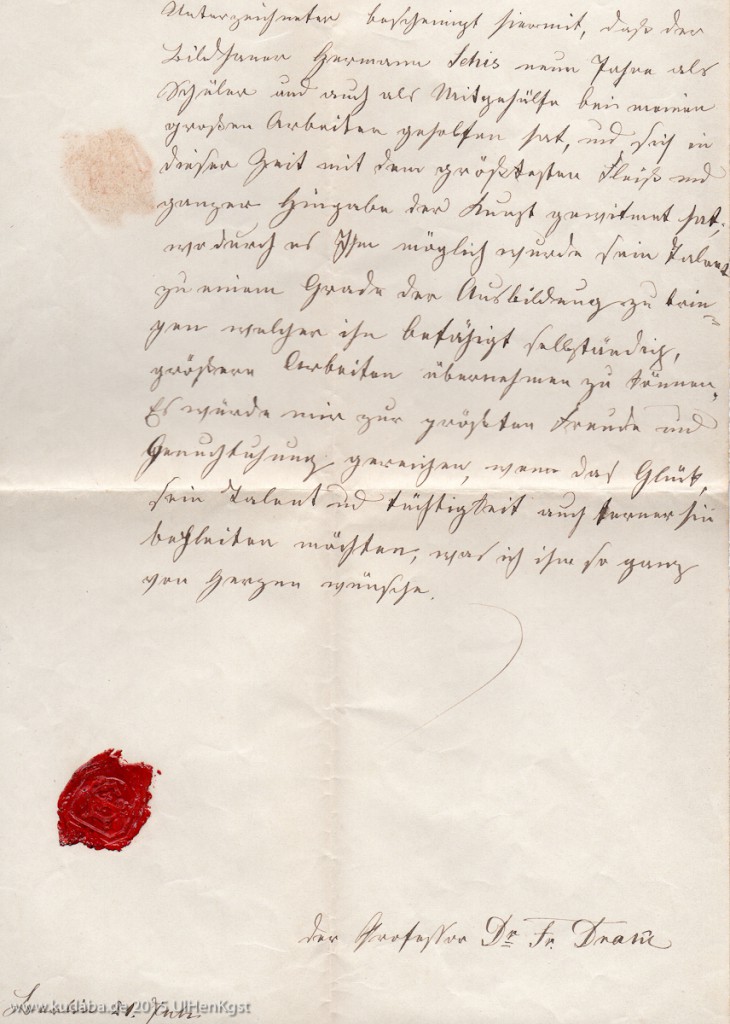 Unterzeichneter bescheinigt hiermit, daß der
Bildhauer Hermann Schis neun Jahre als
Schüler und auch als Mitgehülfe bei meinen
großen Arbeiten geholfen hat, und sich in
dieser Zeit mit dem größtesten Fleiß und
ganzer Hingabe der Kunst gewitmet hat,
wodurch es Ihm möglich wurde sein Talent
zu einem Grade der Ausbildung zu brin=
gen welcher ihn befähigt selbständig,
größere Arbeiten übernehmen zu können.
Es würde mir zur größten Freude und
Genuchtuhung gereichen, wenn das Glück,
sein Talent und Tüchtigkeit auch ferner hin
begleiten möchten, was ich ihm so ganz
von Herzen wünsche.
der Professor Dr. Fr. Drake
21. Juli
www.kudaba.de 2015 UlHenKgst